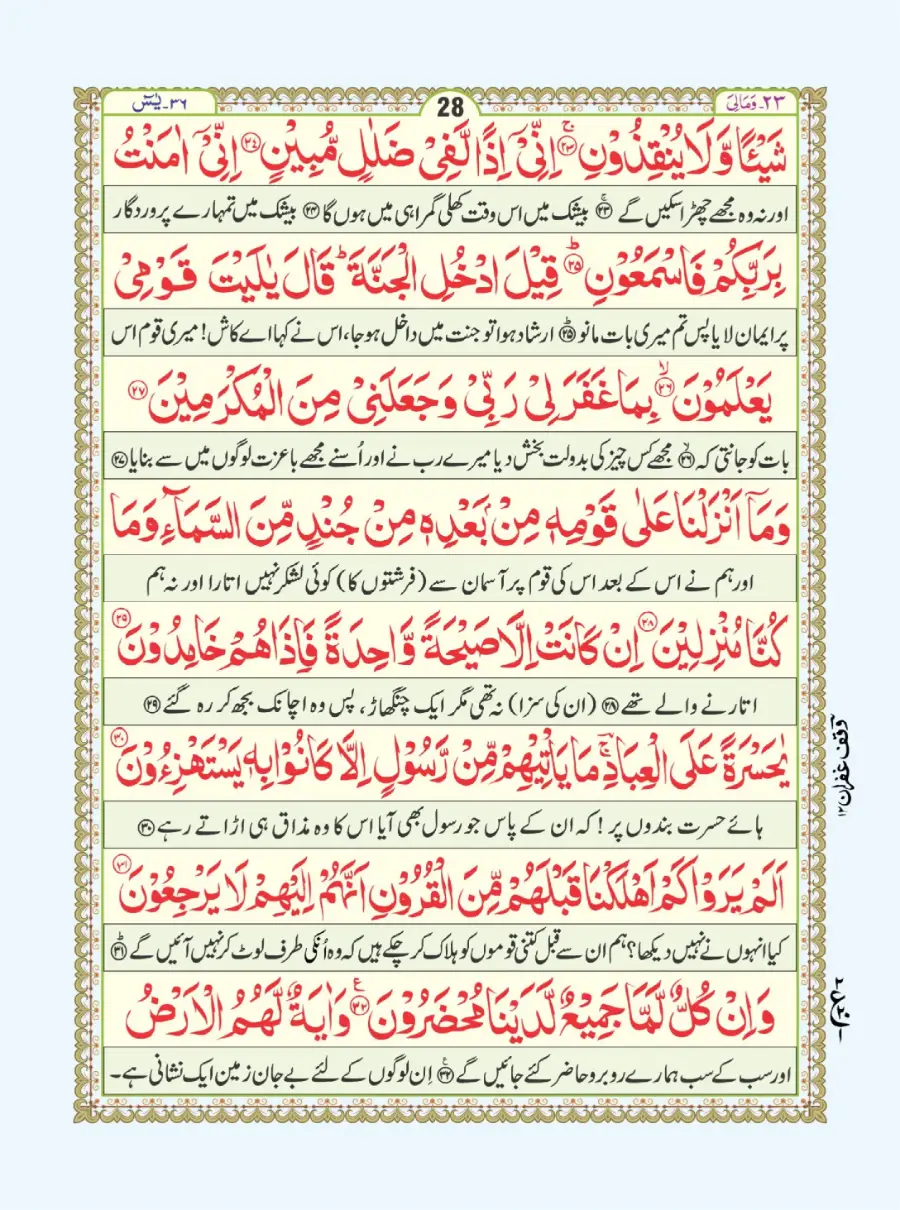 ۲۳۔ وَمَالِیَ 28 ۳۶۔ یٰسٓ
شَيْـًٔا وَّلَا يُنْقِذُوْنِ ۚ۝۲۳ اِنِّيْۤ اِذًا لَّفِيْ ضَلٰلٍ مُّبِيْنٍ ۝۲۴ اِنِّيْۤ اٰمَنْتُ
اور نہ وہ مجھے چھڑا سکیں گے ۝۲۳ بیشک میں اس وقت کھلی گمراہی میں ہوں گا ۝۲۴ بیشک میں تمہارے پروردگار
بِرَبِّكُمْ فَاسْمَعُوْنِ ؕ۝۲۵ قِيْلَ ادْخُلِ الْجَنَّةَ ؕ قَالَ يٰلَيْتَ قَوْمِيْ
پر ایمان لایا پس تم میری بات مانو ۝۲۵ ارشاد ہوا تو جنت میں داخل ہوجا، اس نے کہا اے کاش! میری قوم اس
يَعْلَمُوْنَ ۙ۝۲۶ بِمَا غَفَرَ لِيْ رَبِّيْ وَجَعَلَنِيْ مِنَ الْمُكْرَمِيْنَ ۝۲۷
بات کو جانتی کہ ۝۲۶ مجھے کس چیز کی بدولت بخش دیا میرے رب نے اور اُسنے مجھے باعزت لوگوں میں سے بنایا ۝۲۷
وَمَاۤ اَنْزَلْنَا عَلٰى قَوْمِهٖ مِنْۢ بَعْدِهٖ مِنْ جُنْدٍ مِّنَ السَّمَآءِ وَمَا
اور ہم نے اس کے بعد اس کی قوم پر آسمان سے (فرشتوں کا) کوئی لشکر نہیں اتارا اور نہ ہم
كُنَّا مُنْزِلِيْنَ ۝۲۸ اِنْ كَانَتْ اِلَّا صَيْحَةً وَّاحِدَةً فَاِذَا هُمْ خَامِدُوْنَ ۝۲۹
اتارنے والے تھے ۝۲۸ (ان کی سزا) نہ تھی مگر ایک چنگھاڑ، پس وہ اچانک بجھ کر رہ گئے ۝۲۹
يٰحَسْرَةً عَلَى الْعِبَادِ ۚ مَا يَاْتِيْهِمْ مِّنْ رَّسُوْلٍ اِلَّا كَانُوْا بِهٖ يَسْتَهْزِءُوْنَ ۝۳۰
ہائے حسرت بندوں پر! کہ ان کے پاس جو رسول بھی آیا اس کا وہ مذاق ہی اڑاتے رہے ۝۳۰
اَلَمْ يَرَوْا كَمْ اَهْلَكْنَا قَبْلَهُمْ مِّنَ الْقُرُوْنِ اَنَّهُمْ اِلَيْهِمْ لَا يَرْجِعُوْنَ ۝۳۱
کیا انہوں نے نہیں دیکھا؟ ہم ان سے قبل کتنی قوموں کو ہلاک کر چکے ہیں کہ وہ اُنکی طرف لوٹ کر نہیں آئیں گے ۝۳۱
وَاِنْ كُلٌّ لَّمَّا جَمِيْعٌ لَّدَيْنَا مُحْضَرُوْنَ ۝۳۲ وَاٰيَةٌ لَّهُمُ الْاَرْضُ
اور سب کے سب ہمارے روبرو حاضر کئے جائیں گے ۝۳۲ اِن لوگوں کے لئے بے جان زمین ایک نشانی ہے۔
وقف غفران ۱۲